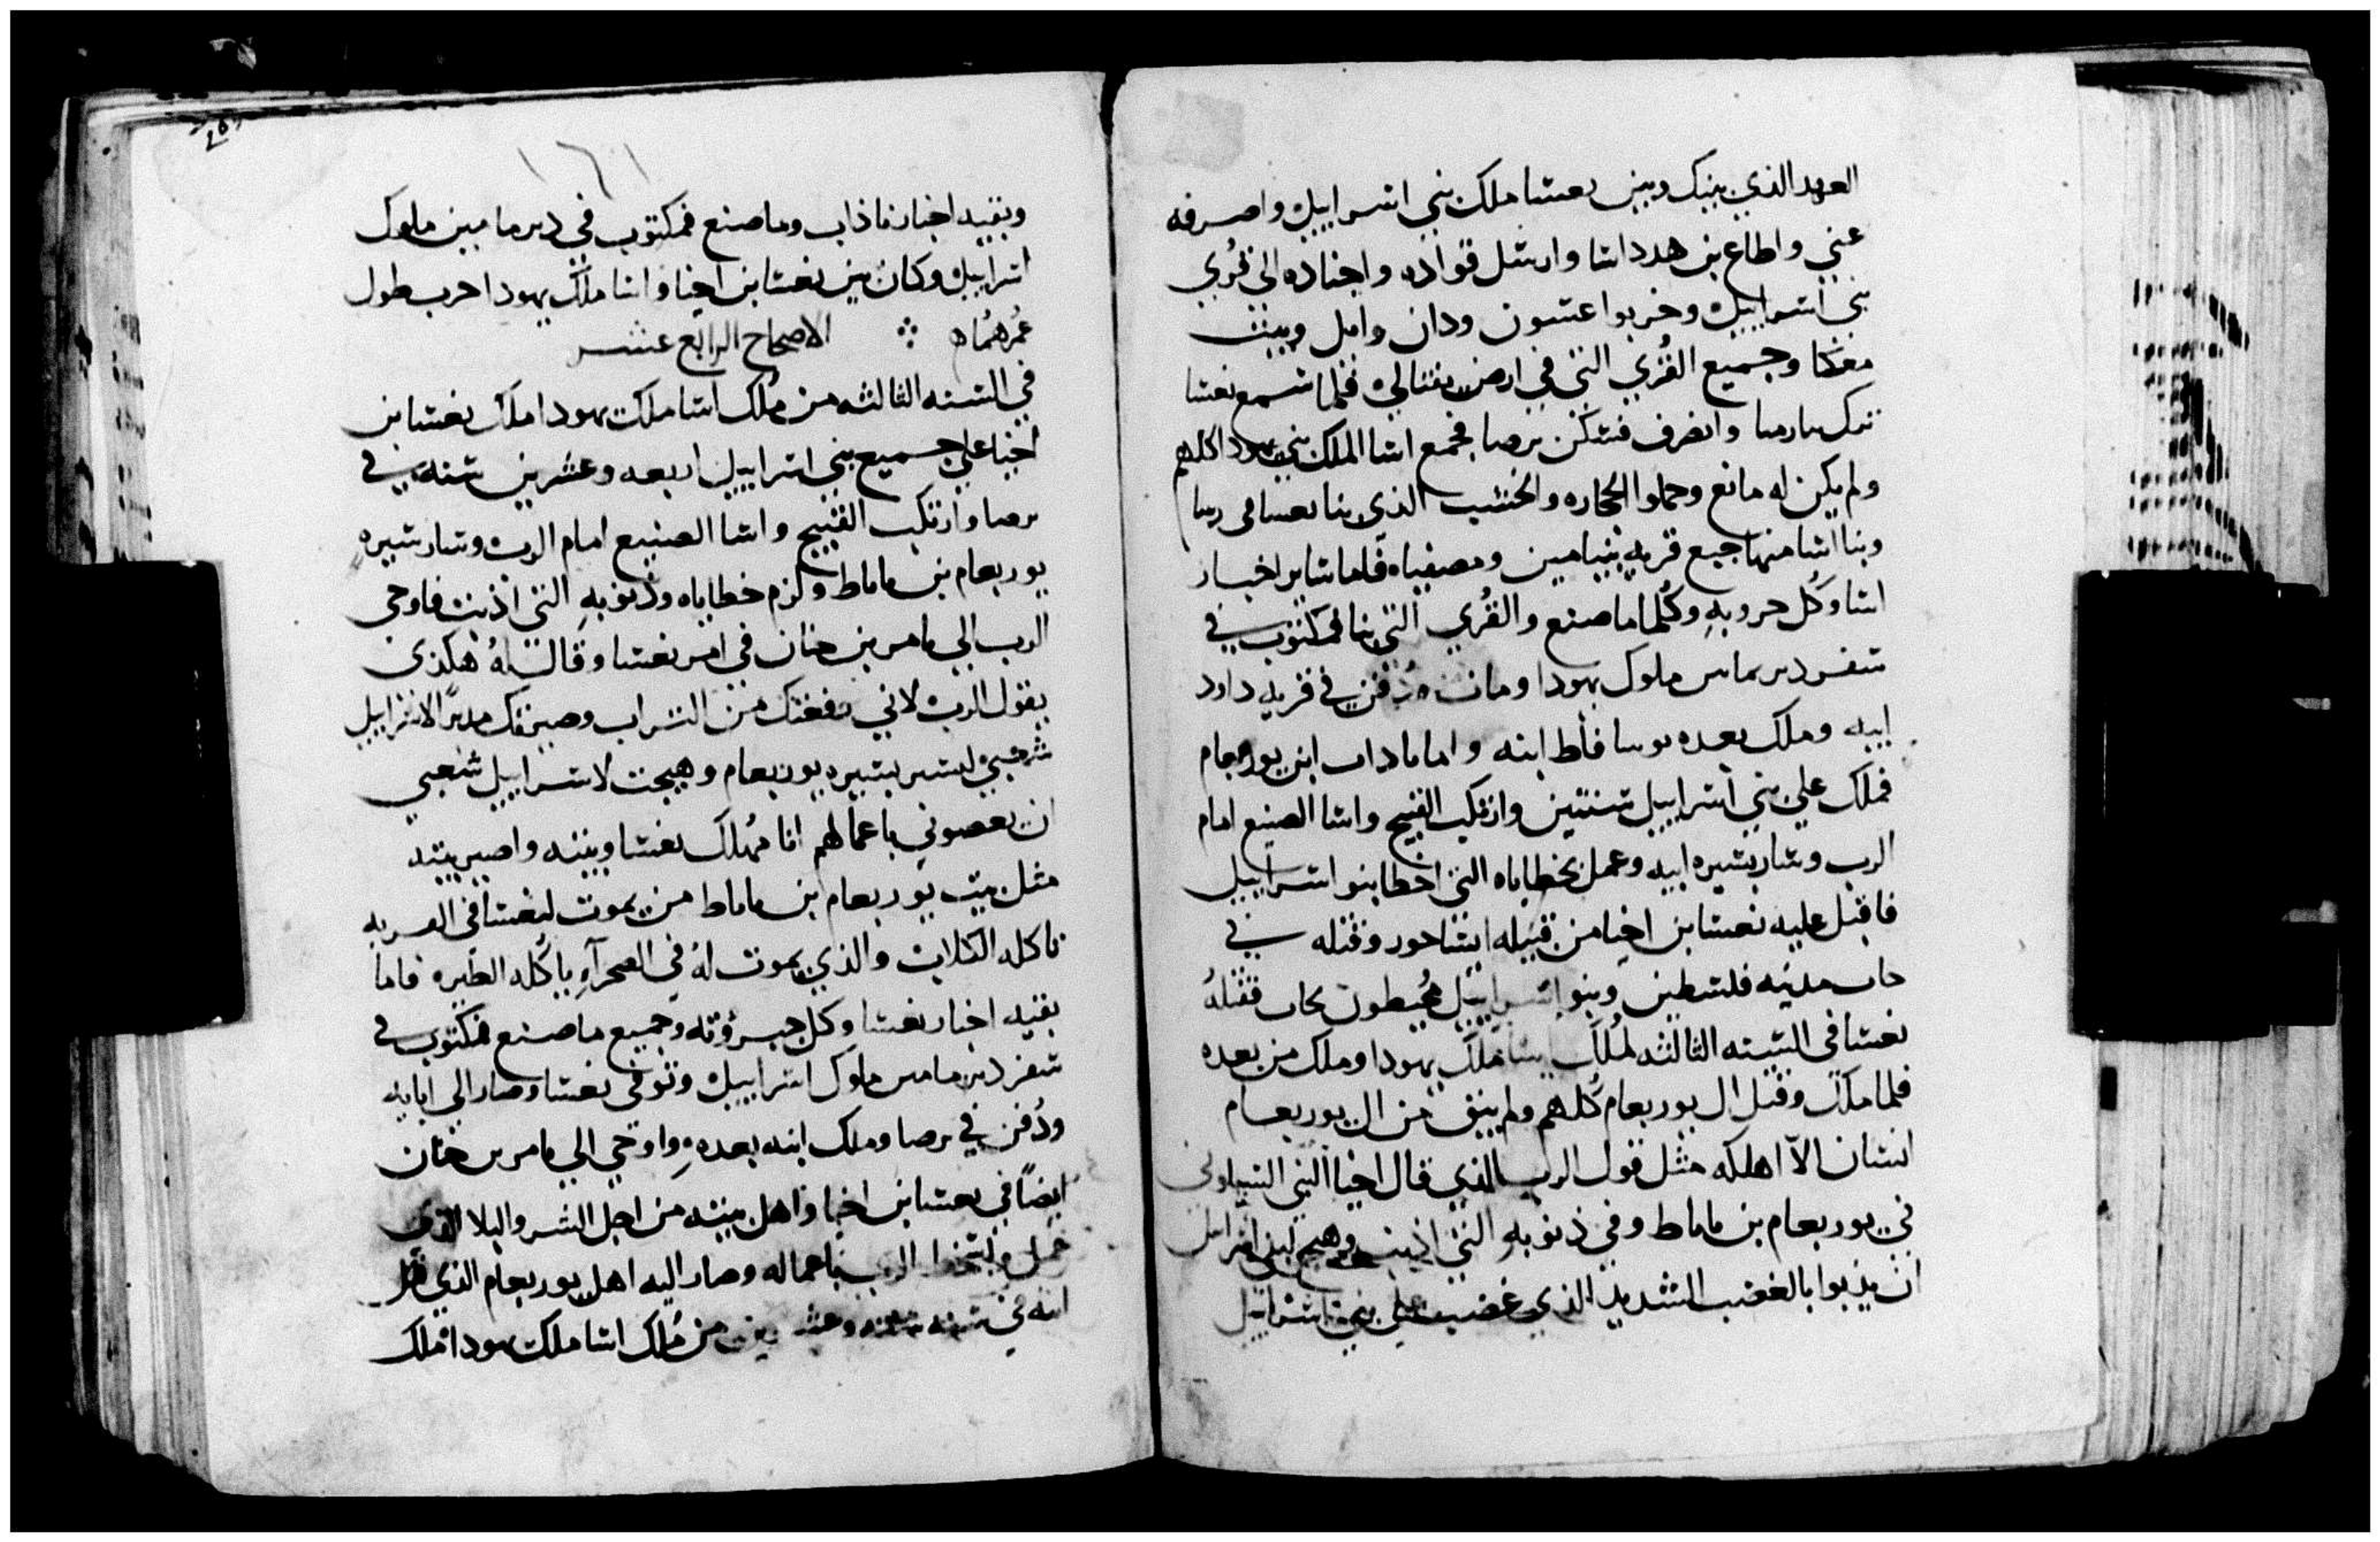 العهد الذي بينك وبين بعشا ملك بني اسراييل واصرفه
عني واطاع بن هدد اسا وارسل قواده واجناده الي قري
بني اسراييل وخربوا عسون ودان وابل وبيت
معكا وجميع القري التي في ارض نفتالي فلما سمع بعشا
ترك بارما وانصرف فسكن برصا فجمع اسا الملك بني يهودا كلهم
ولم يكن له مانع وحملوا الحجاره والخشب الذي بنا بعسا في رما
وبنا اسا منها جبع قرية بنيامين ومصفياه فاما ساير اخبار
اسا وكل حروبه وكلما ما صنع والقري التي بنا فمكتوب في
سفر دبرمامين ملوك يهودا ومات ودفن في قرية داود
ابيه وملك بعده يوسافاط ابنه واما ناداب ابن يوربعام
فملك علي بني اسراييل سنتين وارتكب القبيح واسا الصنيع امام
الرب وسار بسيره ابيه وعمل بخطاياه التي اخطا بنو اسراييل
فاقبل عليه بعشا بن اخيا من قبيله ايساخور وقتله في
جاب مدينه فلسطين وبنو اسراييل محيطون بجاب فقتلهُ
بعشا في السنه الثالثه لملك اسا ملك يهودا وملك من بعده
فلما ملك وقتل ال يوربعام كلهم ولم يبق من ال يوربعام
انسان الا اهلكه مثل قول الرب الذي قال اخيا النبي الشيلوني
في يوربعام بن ناباط وفي ذنوبه التي اذنب وهيج لبني اسراييل
ان يذنبوا بالغضب الشديد الذي غضب علي بني اسراييل
١٦١
وبقيه اخبار ناذاب وما صنع فمكتوب في دبرمامين ملوك
اسراييل وكان بين بعشا بن اخيا واسا ملك يهودا حرب طول
عمرهما ه الاصحاح الرابع عشر
في السنه الثالثه من مُلك اسا ملك يهودا ملك بعشا بن
اخيا علي جميع بني اسراييل اربعه وعشرين سنه في
برصا وارتكب القبيح واسا الصنيع امام الرب وسار سيره
يوربعام بن ناباط ولزم خطاياه وذنوبهِ التي اذنب فاوحي
الرب الي يامر بن حنان في امر بعشا وقال لهُ هكذي
يقول الرب لاني رفعتك من التراب وصيرتك مدبرًا لاسراييل
شعبي لتسير بسيره يوربعام وهيجت لاسراييل شعبي
ان يعصوني باعمالهم انا مُهلك بعشا وبيته واصير بيته
مثل بيت يوربعام ابن ناباط من يموت لبعشا في القريه
تاكله الكلاب والذي يموت لهُ في الصحرآءِ ياكُله الطيره فاما
بقيه اخبار بعشا وكل جبروته وجميع ما صنع فمكتوب في
سفر دبرمامين ملوك اسراييل وتوفي بعشا وصار الي ابايه
ودُفن في برصا وملك ابنه بعدهِ واوحي الي يامر بن حنان
ايضًا في بعشا بن اخيا واهل بيته من اجل الشر والبلا الذي
عمل الرب باعماله وصار اليه اهل يوربعام الذي قتل
انه في سنه وعشرين من مُلك اسا ملك يهودا ملك